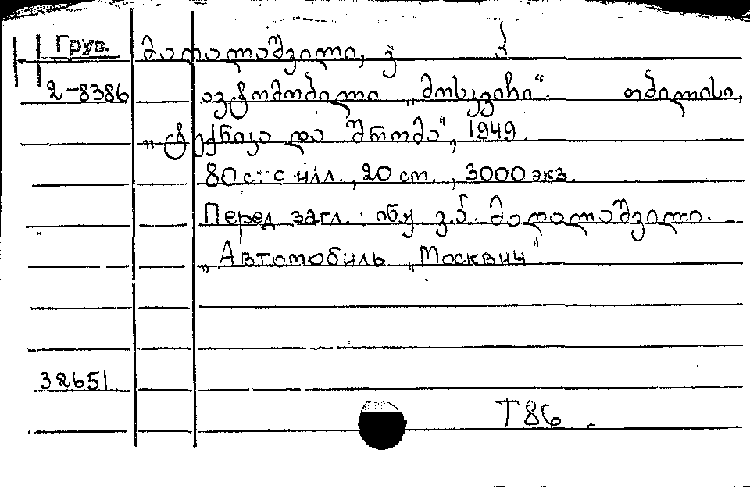 Груз. მალალაშვილი, ვ. ნ.
2-8386 ავტომობილი „მოსკვიჩი“. თბილისი,
„ტექნიკა და შრომა“, 1949.
80 с. с илл., 20 см., 3000 экз.
Перед загл.: ინჟ. ვ.ნ. მალალაშვილი.
„Автомобиль „Москвич“
32651
Т86.